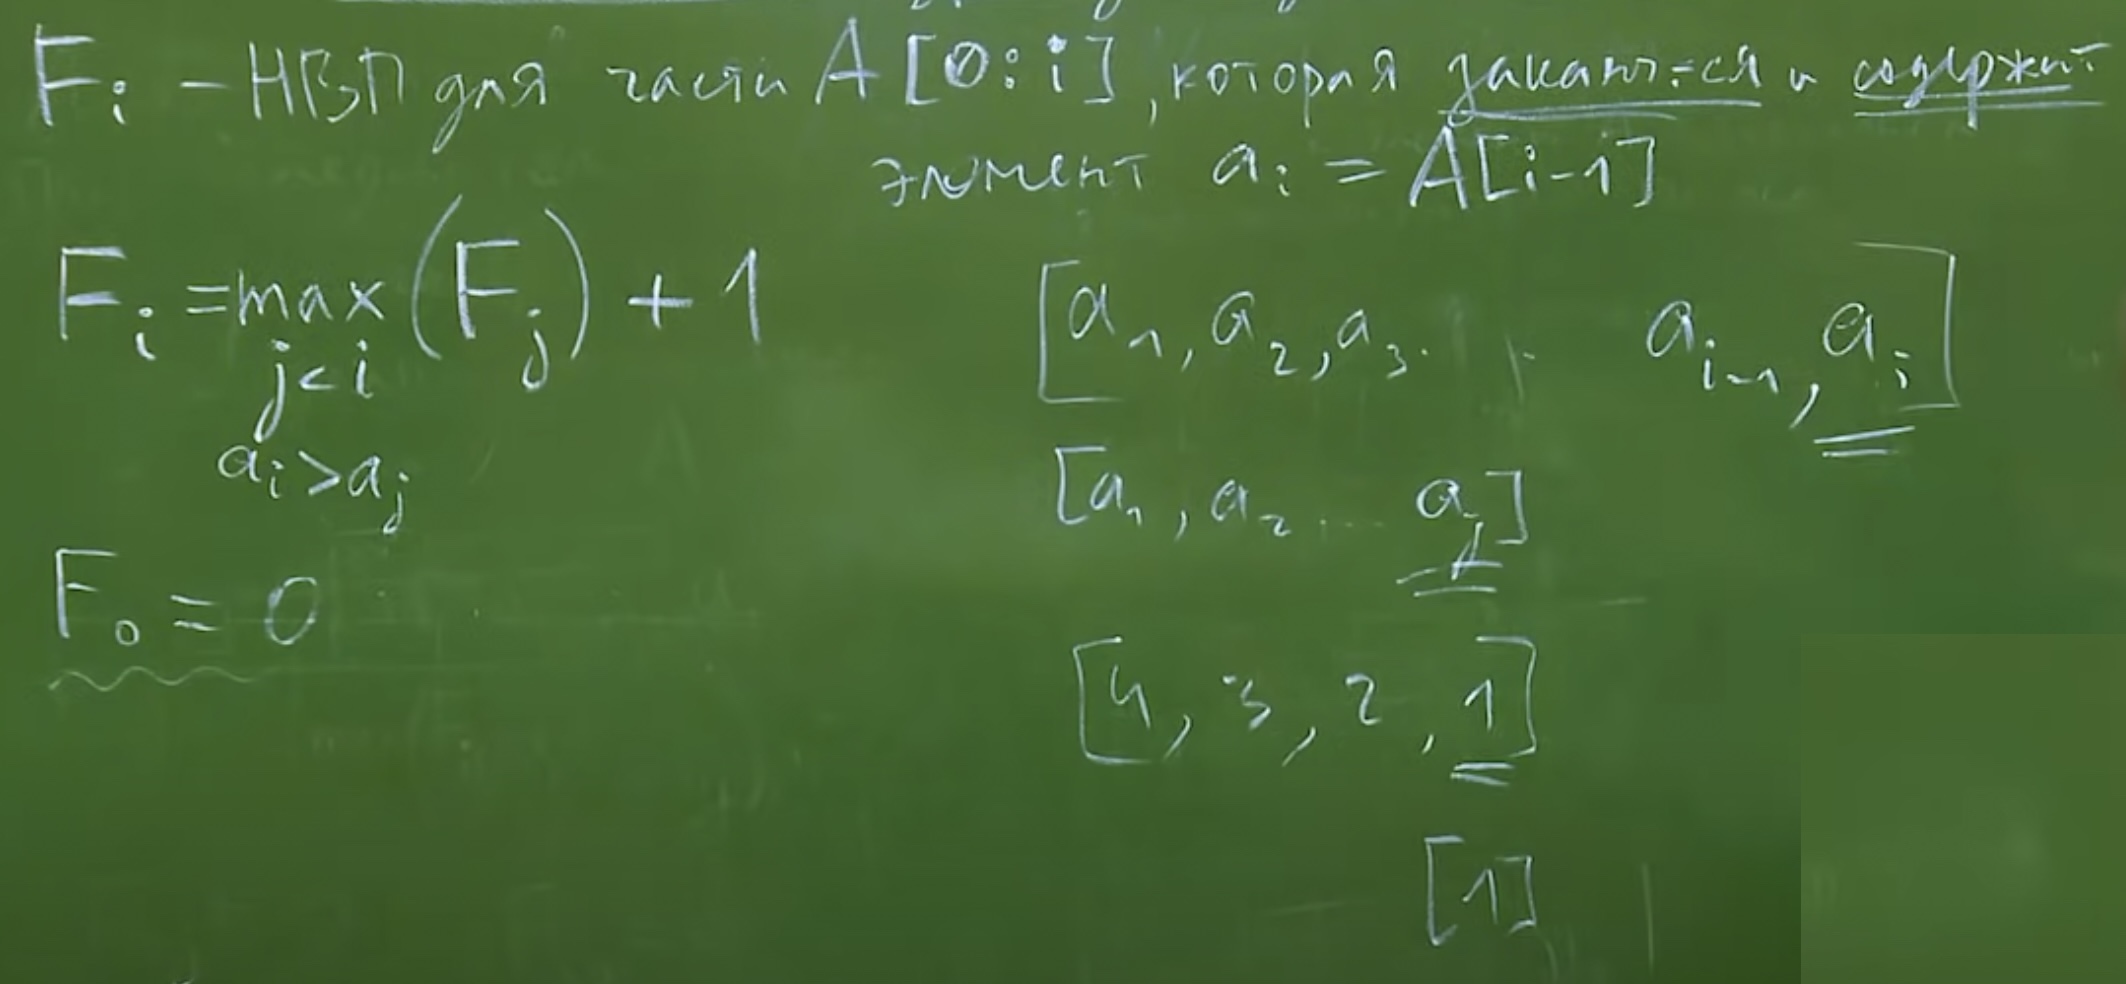 Fᵢ - НВП для части A[0:i], которая заканч-ся и содержит
элемент aᵢ = A[i-1]
Fᵢ = max (Fⱼ) + 1
j<i
aᵢ>aⱼ
F₀ = 0
[a₁, a₂, a₃. . aᵢ₋₁, aᵢ]
[a₁, a₂ ... aⱼ]
[4, 3, 2, 1]
[1]